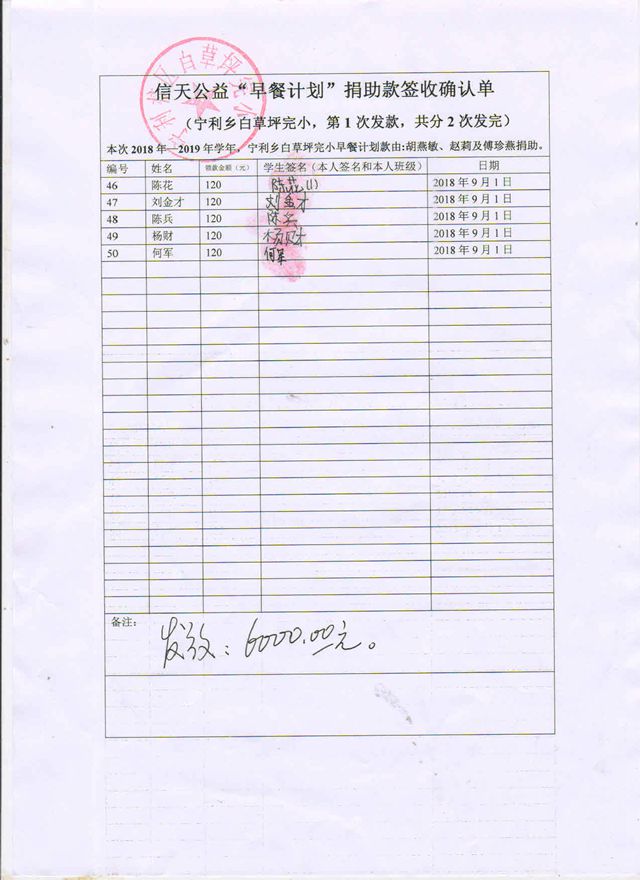 信天公益“早餐计划”捐助款签收确认单
（宁利乡白草坪完小，第1次发款，共分2次发完）
本次2018年—2019年学年，宁利乡白草坪完小早餐计划款由:胡燕敏、赵莉及傅珍燕捐助。
编号 姓名 领款金额（元） 学生签名（本人签名和本人班级） 日期
46 陈花 120 陈花(1) 2018年9月1日
47 刘金才 120 刘金才 2018年9月1日
48 陈兵 120 陈兵 2018年9月1日
49 杨财 120 杨财 2018年9月1日
50 何军 120 何军 2018年9月1日
备注：
发放：6000.00元。